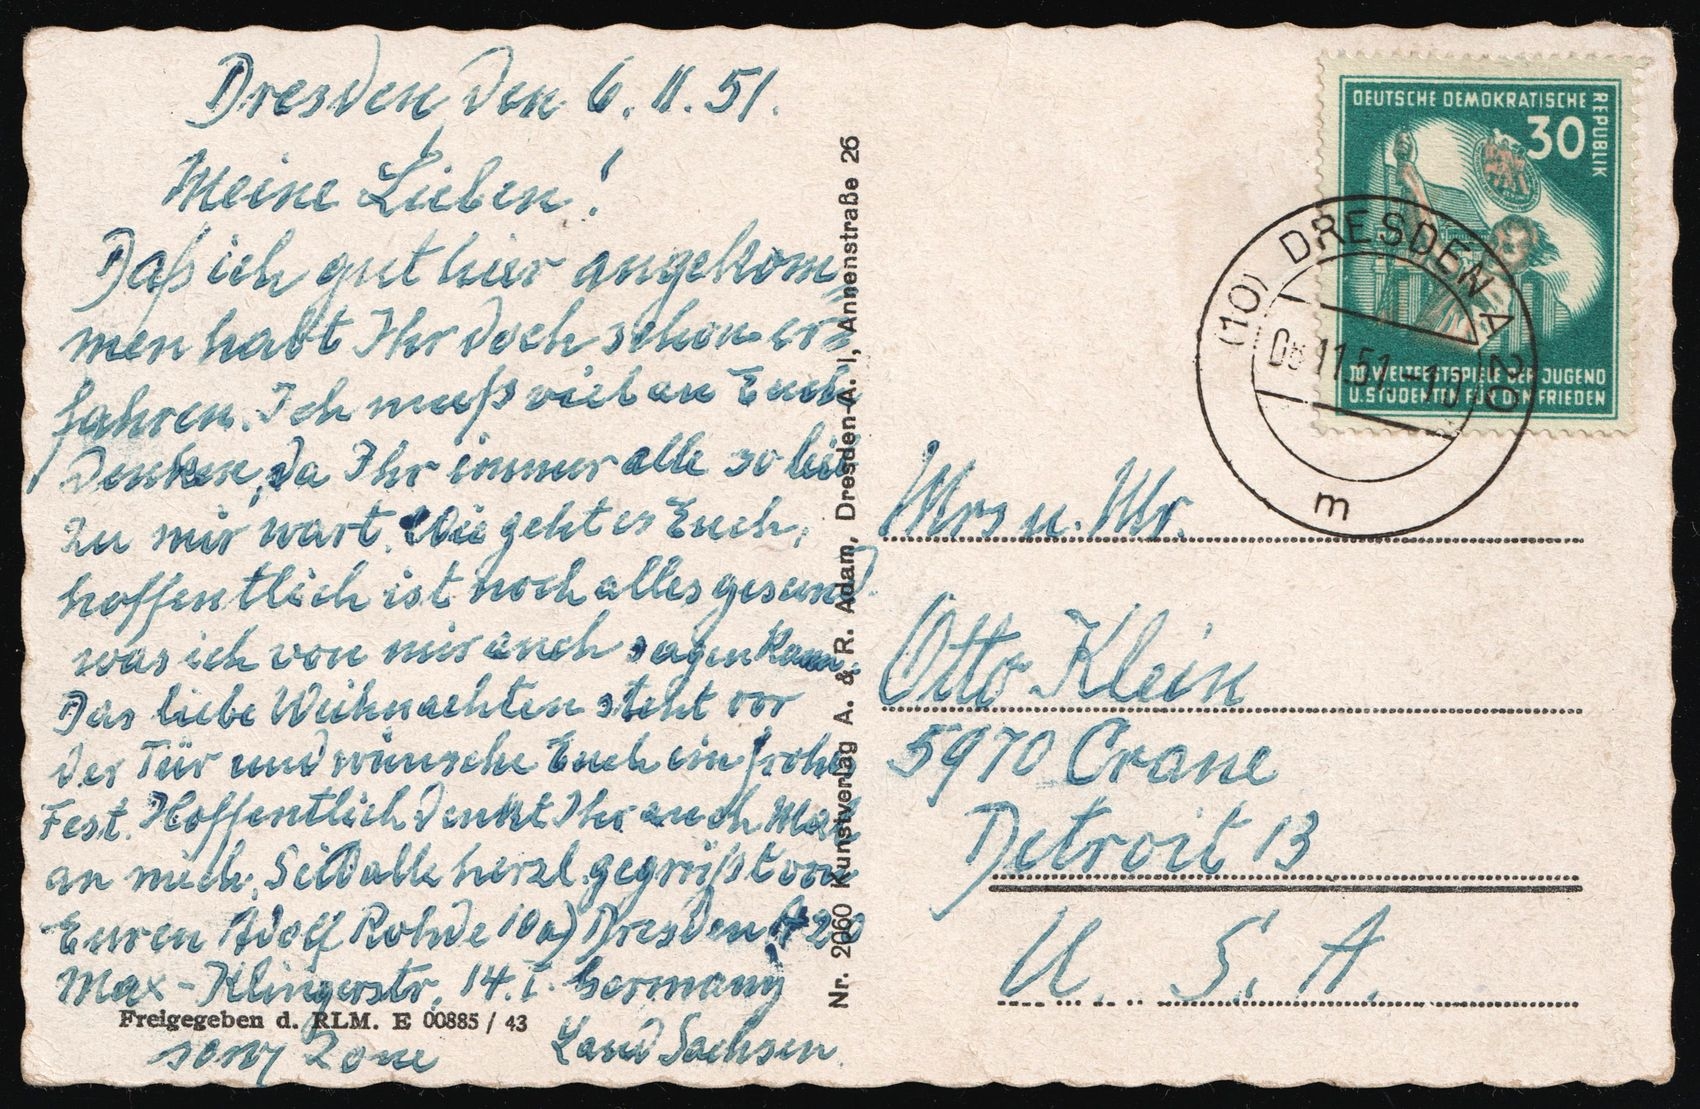 Dresden den 6.11.51.
Meine Lieben!
Daß ich gut hier angekom=
men habt Ihr doch schon er=
fahren. Ich muß viel an Euch
denken, da Ihr immer alle so lieb
zu mir wart. Wie geht es Euch,
hoffentlich ist noch alles gesund.
was ich von mir auch sagen kann.
Das liebe Weihnachten steht vor
der Tür und wünsche Euch ein frohes
Fest. Hoffentlich denkt Ihr auch Mal
an mich. Seid alle herzl. gegrüßt von
Euren Adolf Rohde 10a) Dresden A 20
Max-Klingerstr. 14.I. Germany
Freigegeben d. RLM. E 00885 / 43
sowj Zone Land Sachsen.
Nr. 2060 Kunstverlag A. & R. Adam, Dresden-A. I, Annenstraße 26
DEUTSCHE DEMOKRATISCHE
REPUBLIK
30
III. WELTFESTSPIELE DER JUGEND
U. STUDENTEN FÜR DEN FRIEDEN
(10) DRESDEN-A 20
11.51.-10
m
Mrs u. Mr.
Otto Klein
5970 Crane
Detroit 13
U. S. A.